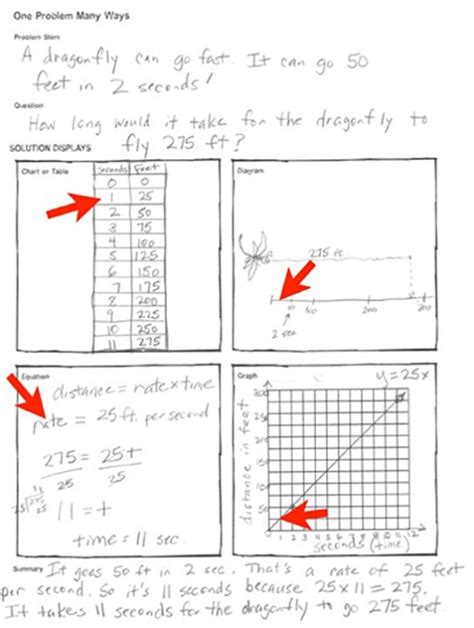 One Problem Many Ways
Problem Stem
A dragonfly can go fast. It can go 50
feet in 2 seconds!
Question
How long would it take for the dragonfly to
fly 275 ft?
SOLUTION DISPLAYS
Chart or Table
Seconds Feet
0 0
1 25
2 50
3 75
4 100
5 125
6 150
7 175
8 200
9 225
10 250
11 275
Diagram
275 ft
50 100 200
2 sec
Equation
distance = rate x time
rate = 25 ft. per second
275 = 25t
25 25
11 = t
time = 11 sec.
Graph
y = 25x
300
250
200
150
100
50
distance in feet
0 1 2 3 4 5 6 7 8 9 10 11 12
seconds (time)
Summary It goes 50 ft in 2 sec. That's a rate of 25 feet
per second. So it's 11 seconds because 25 x 11 = 275.
It takes 11 seconds for the dragonfly to go 275 feet